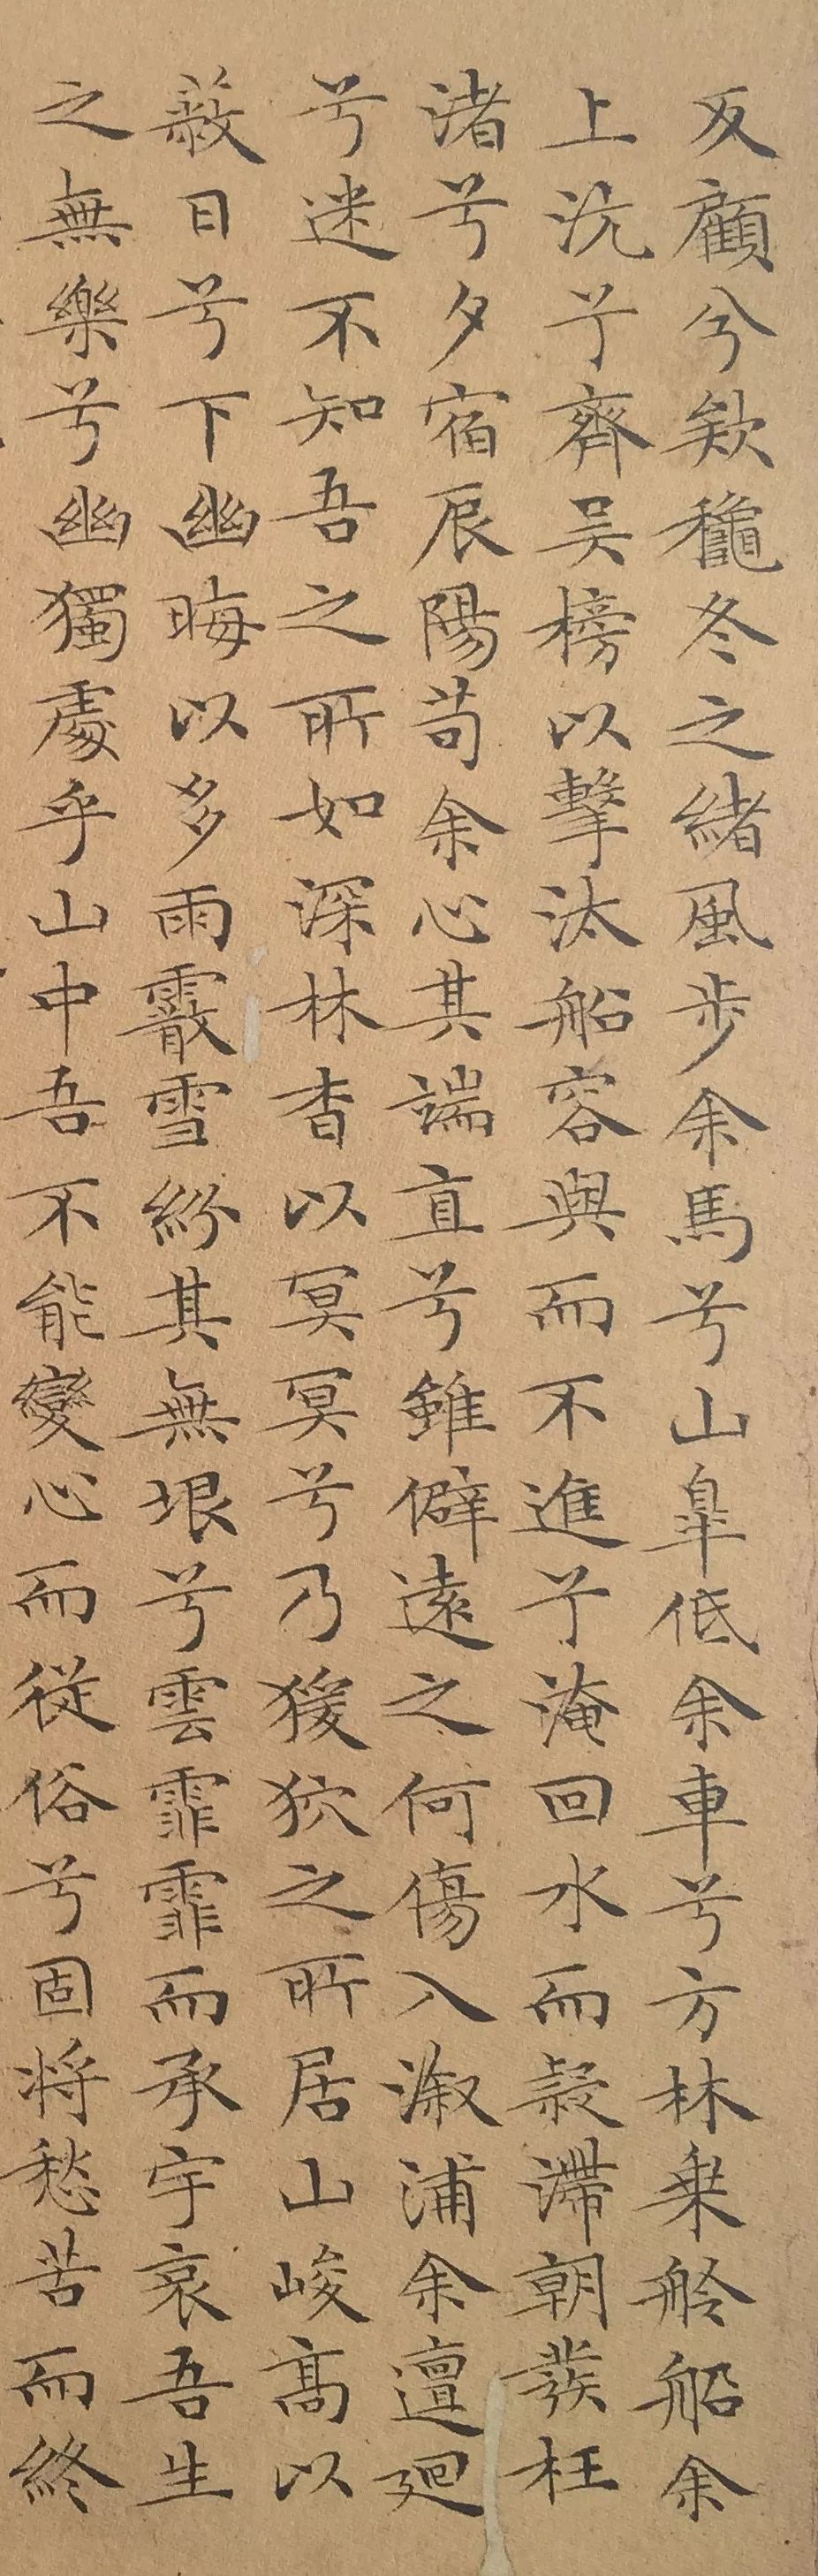 反顧兮欸穐冬之緒風步余馬兮山皐低余車兮方林乗舲船余
上沅兮齊吴榜以擊汰船容與而不進兮淹回水而凝滯朝發枉
渚兮夕宿辰陽苟余心其端直兮雖僻遠之何傷入漵浦余邅廻
兮迷不知吾之所如深林杳以冥冥兮乃猨狖之所居山峻髙以
蔽日兮下幽晦以多雨霰雪紛其無垠兮雲霏霏而承宇哀吾生
之無樂兮幽獨處乎山中吾不能變心而從俗兮固将愁苦而終